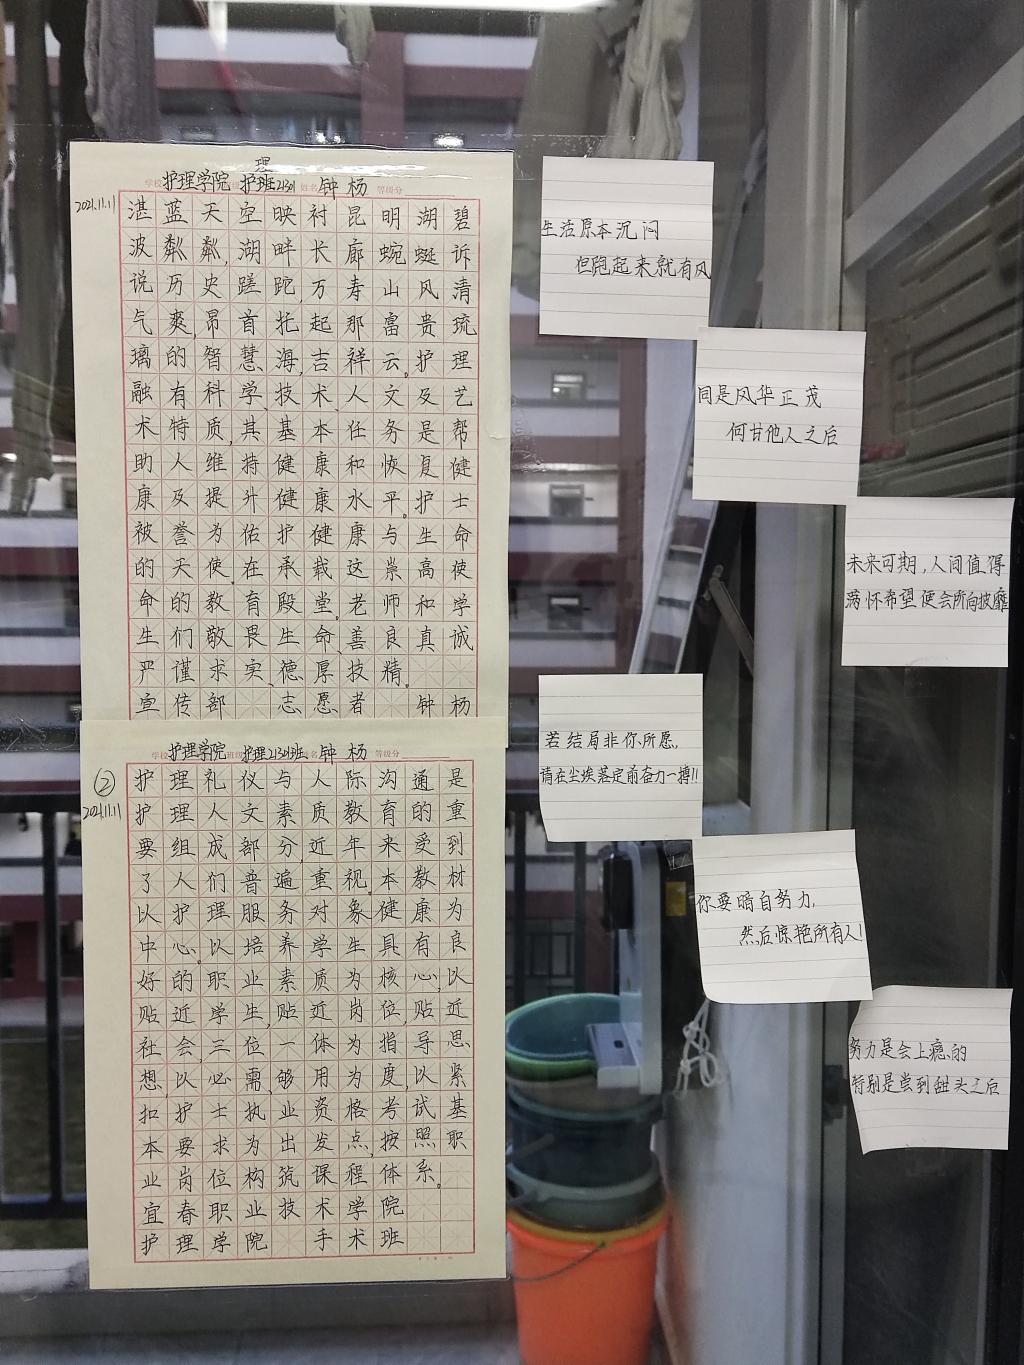 理
学校 护理学院 班级 护班21301 姓名 钟杨 等级分
2021.11.11
湛蓝天空映衬昆明湖碧
波粼粼,湖畔长廊蜿蜒诉
说历史蹉跎,万寿山风清
气爽,昂首托起那富贵琉
璃的智慧海,吉祥云。护理
融有科学、技术、人文及艺
术特质,其基本任务是帮
助人维持健康和恢复健
康及提升健康水平。护士
被誉为佑护健康与生命
的天使。在承载这崇高使
命的教育殿堂。老师和学
生们敬畏生命、善良真诚
严谨求实、德厚技精。
宣传部 志愿者 钟杨
学校 护理学院 班级 护理21301班 姓名 钟杨 等级分
②
2021.11.11
护理礼仪与人际沟通是
护理人文素质教育的重
要组成部分,近年来受到
了人们普遍重视。本教材
以护理服务对象健康为
中心。以培养学生具有良
好的职业素质为核心,以
贴近学生,贴近岗位,贴近
社会,三位一体为指导思
想,以必需,够用为度,以紧
扣护士执业资格考试基
本要求为出发点,按照职
业岗位构筑课程体系。
宜春职业技术学院
护理学院 手术班
生活原本沉闷
但跑起来就有风
同是风华正茂
何甘他人之后
未来可期,人间值得
满怀希望便会所向披靡
若结局非你所愿,
请在尘埃落定前奋力一搏!!
你要暗自努力,
然后惊艳所有人!
努力是会上瘾的
特别是尝到甜头之后